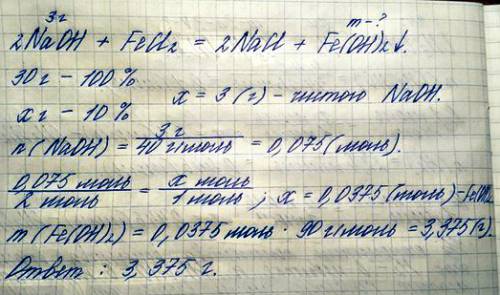 3г m-?
2NaOH + FeCl₂ = 2NaCl + Fe(OH)₂↓.
30г – 100 %
x г – 10 % x = 3 (г) – чистого NaOH.
n (NaOH) = 3 г / 40 г/моль = 0,075 (моль).
0,075 моль / 2 моль = x моль / 1 моль ; x = 0,0375 (моль) –
m (Fe(OH)₂) = 0,0375 моль · 90 г/моль = 3,375 (г).
Ответ : 3,375 г.